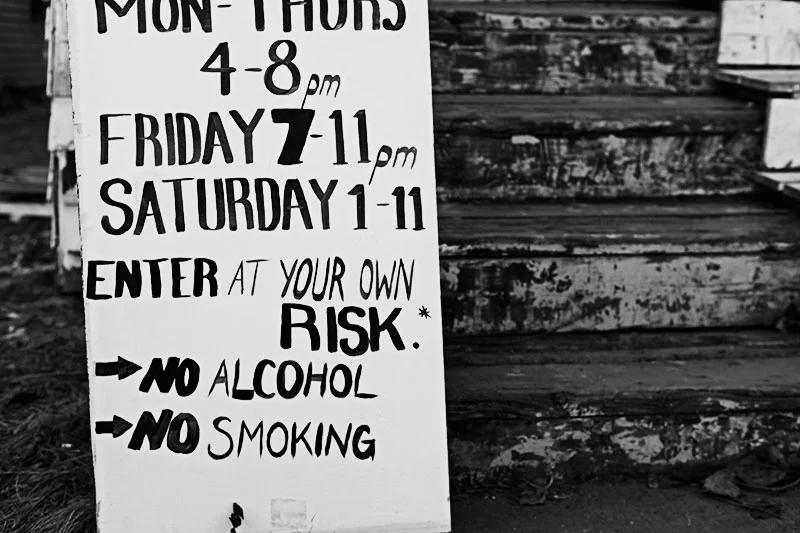 MON-THURS
4-8pm
FRIDAY 7-11pm
SATURDAY 1-11
ENTER AT YOUR OWN
RISK.*
→NO ALCOHOL
→NO SMOKING